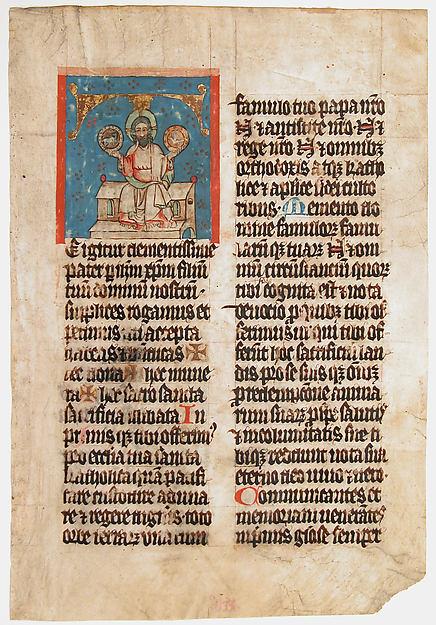 E igitur clementissime
pater p ihm xpm filiū
tuū dominū nostrū
supplices rogamus et
petimus uti accepta
habeas et bn̄dicas ✠
hec dona ✠ hec mune
ra ✠ hec sancta
sacrificia illibata In
primis q̄ tibi offerim⁹
pro ecclīa tua sancta
katholica quā pacifi
care custodire aduna
re et regere digneris toto
orbe terrarū vna cum
famulo tuo papa nr̄o
N et antistite nr̄o N et
rege nr̄o N et omnibus
orthodoxis atq̄ katho
lice et aplīce fidei culto
ribus Memento do
mine famulorū famu
larū q̄ tuarū N et om
niū circūstantiū quorū
tibi cognita est et nota
deuocio p quibus tibi of
ferimus uł qui tibi of
ferūt hoc sacrificiū lau
dis pro se suis q̄ omībus
p redempcione anima
rum suarū p spe salutis
et incolumitatis sue ti
bi q̄ reddunt uota sua
eterno deo uiuo et uero
Communicantes et
memoriam venerātes
inp̄mis gl̄ose semper